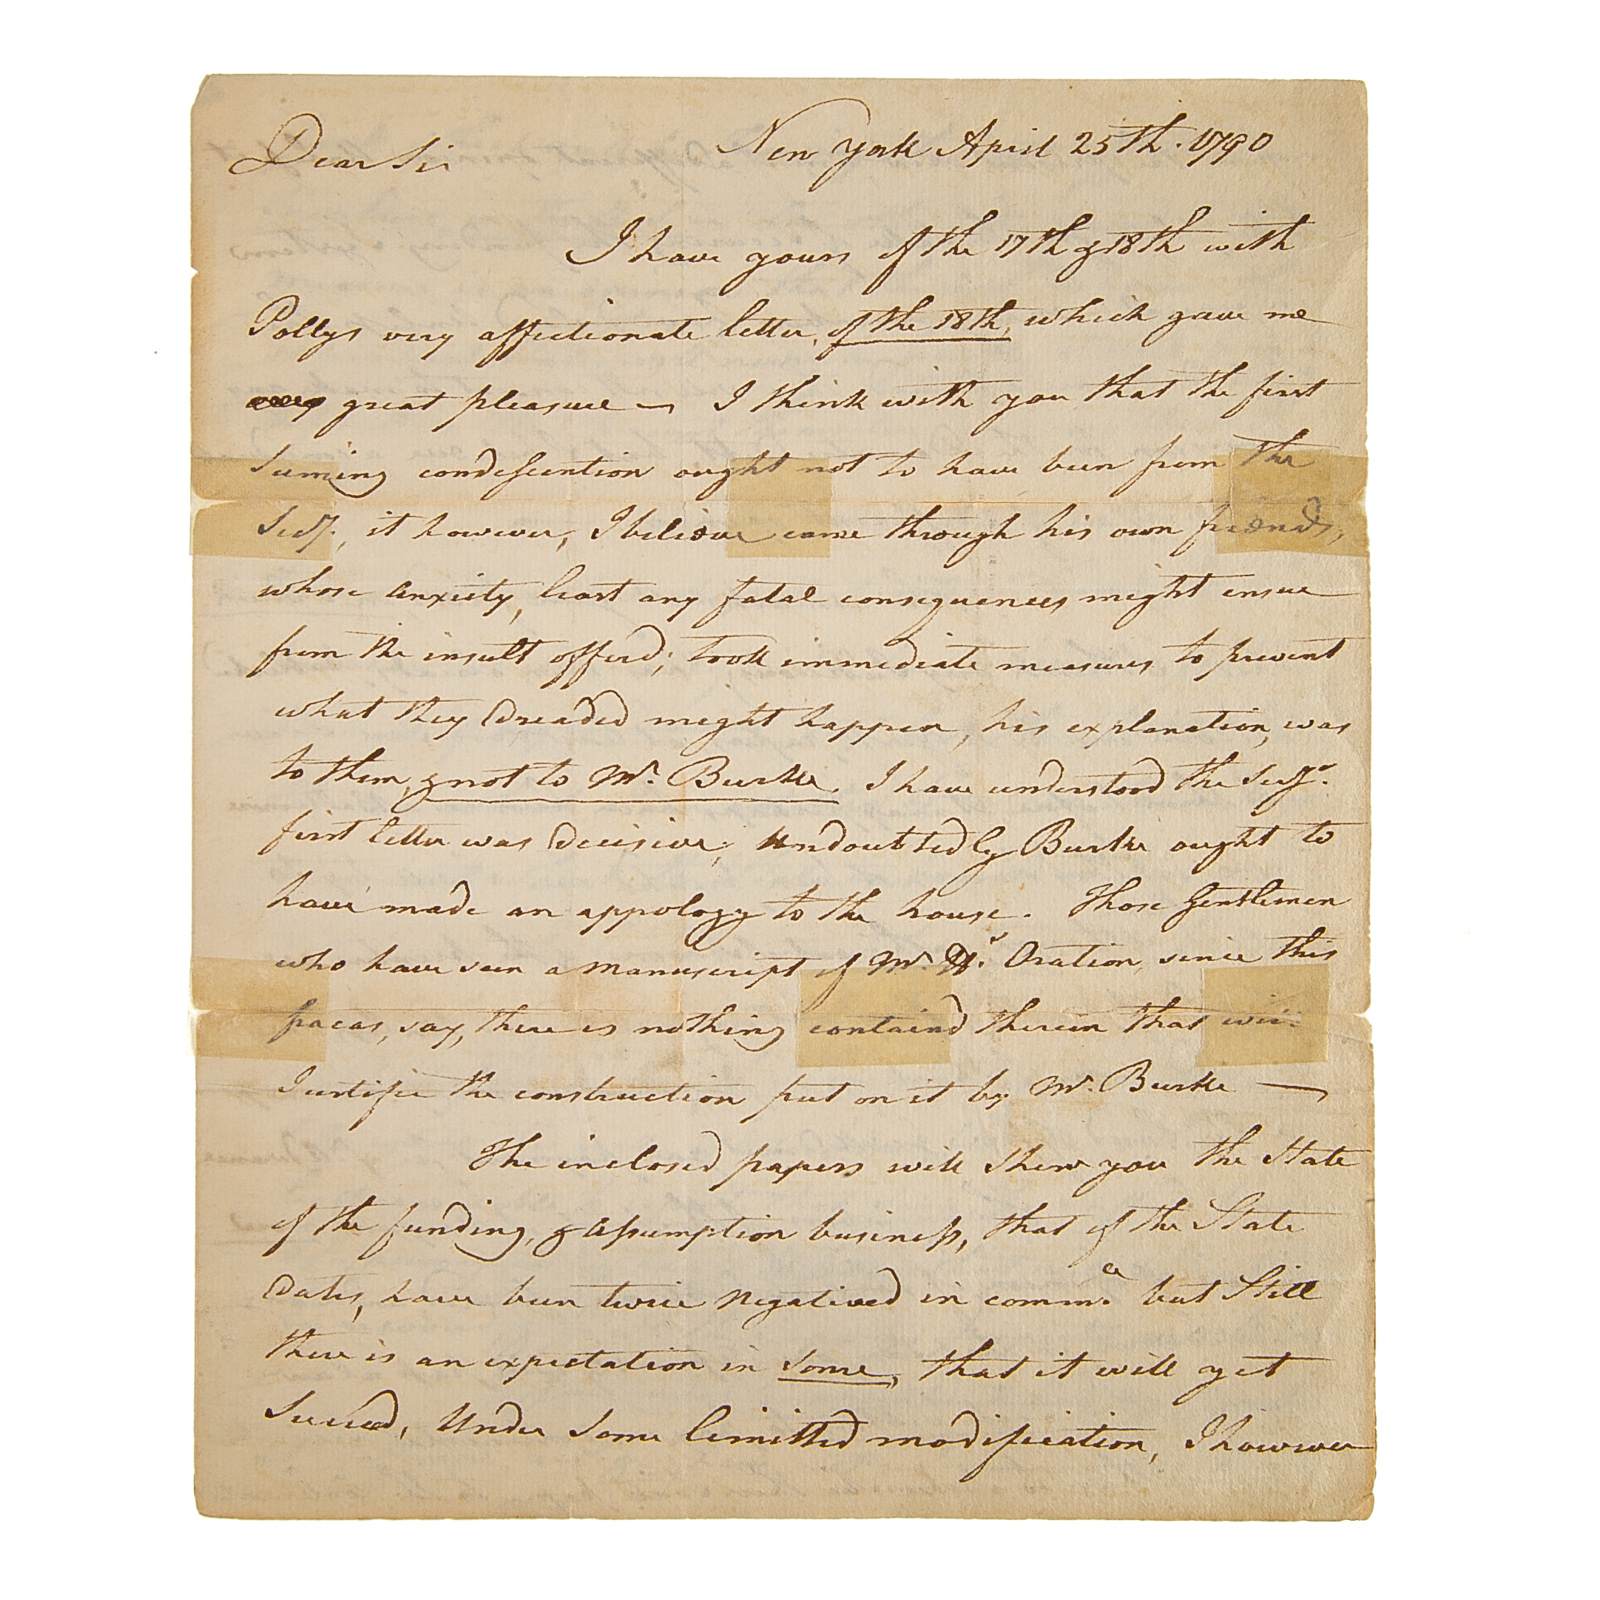 New York April 25th. 1790
Dear Sir
I have yours of the 17th & 18th with
Pollys very affectionate letter, of the 18th, which gave me
great pleasure — I think with you that the first
seming condescention ought not to have been from the
Secy., it however, I believe came through his own friends,
whose anxiety, least any fatal consequences might ensue
from the insult offerd; took immediate measures to prevent
what they dreaded might happen, his explanation, was
to them, & not to Mr. Burke. I have understood the Secy.
first letter was decisive; undoubtedly Burke ought to
have made an appology to the house. Those Gentlemen
who have seen a manuscript of Mr. H's Oration, since this
fracas, say, there is nothing containd therein that will
Justifie the construction put on it by Mr. Burke —
The inclosed papers will shew you the State
of the funding, & assumption business, that of the State
Debts, have been twice Negatived in comm.ee but Still
there is an expectation in some, that it will yet
Succeed, Under Some limitted modification, I however